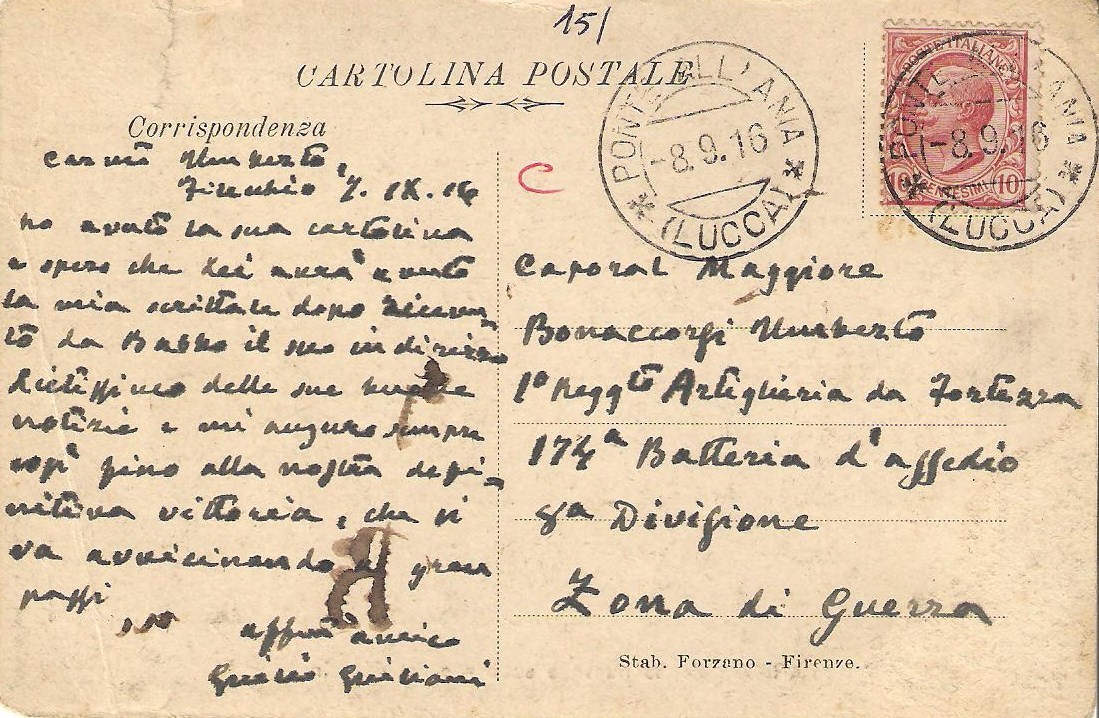 151
CARTOLINA POSTALE
Corrispondenza
POSTE ITALIANE
10 CENTESIMI 10
PONTE ALL'ANIA
-8.9.16
(LUCCA)
PONTE ALL'ANIA
-8.9.16
(LUCCA)
C
Carmo Umberto,
7. IX. 16
ho avuto la sua cartolina
e spero che Lei avrà avuto
la mia scrittale dopo ricevu-
to da Babbo il suo indirizzo
Lietissimo delle sue buone
notizie e mi auguro sempre
così fino alla nostra defi-
nitiva vittoria, che si
va avvicinando a gran
passi
affmo amico
Giuliani
Caporal Maggiore
Bonaccorsi Umberto
1° Reggto Artiglieria da Fortezza
174a Batteria d'assedio
8a Divisione
Zona di Guerra
Stab. Forzano - Firenze.